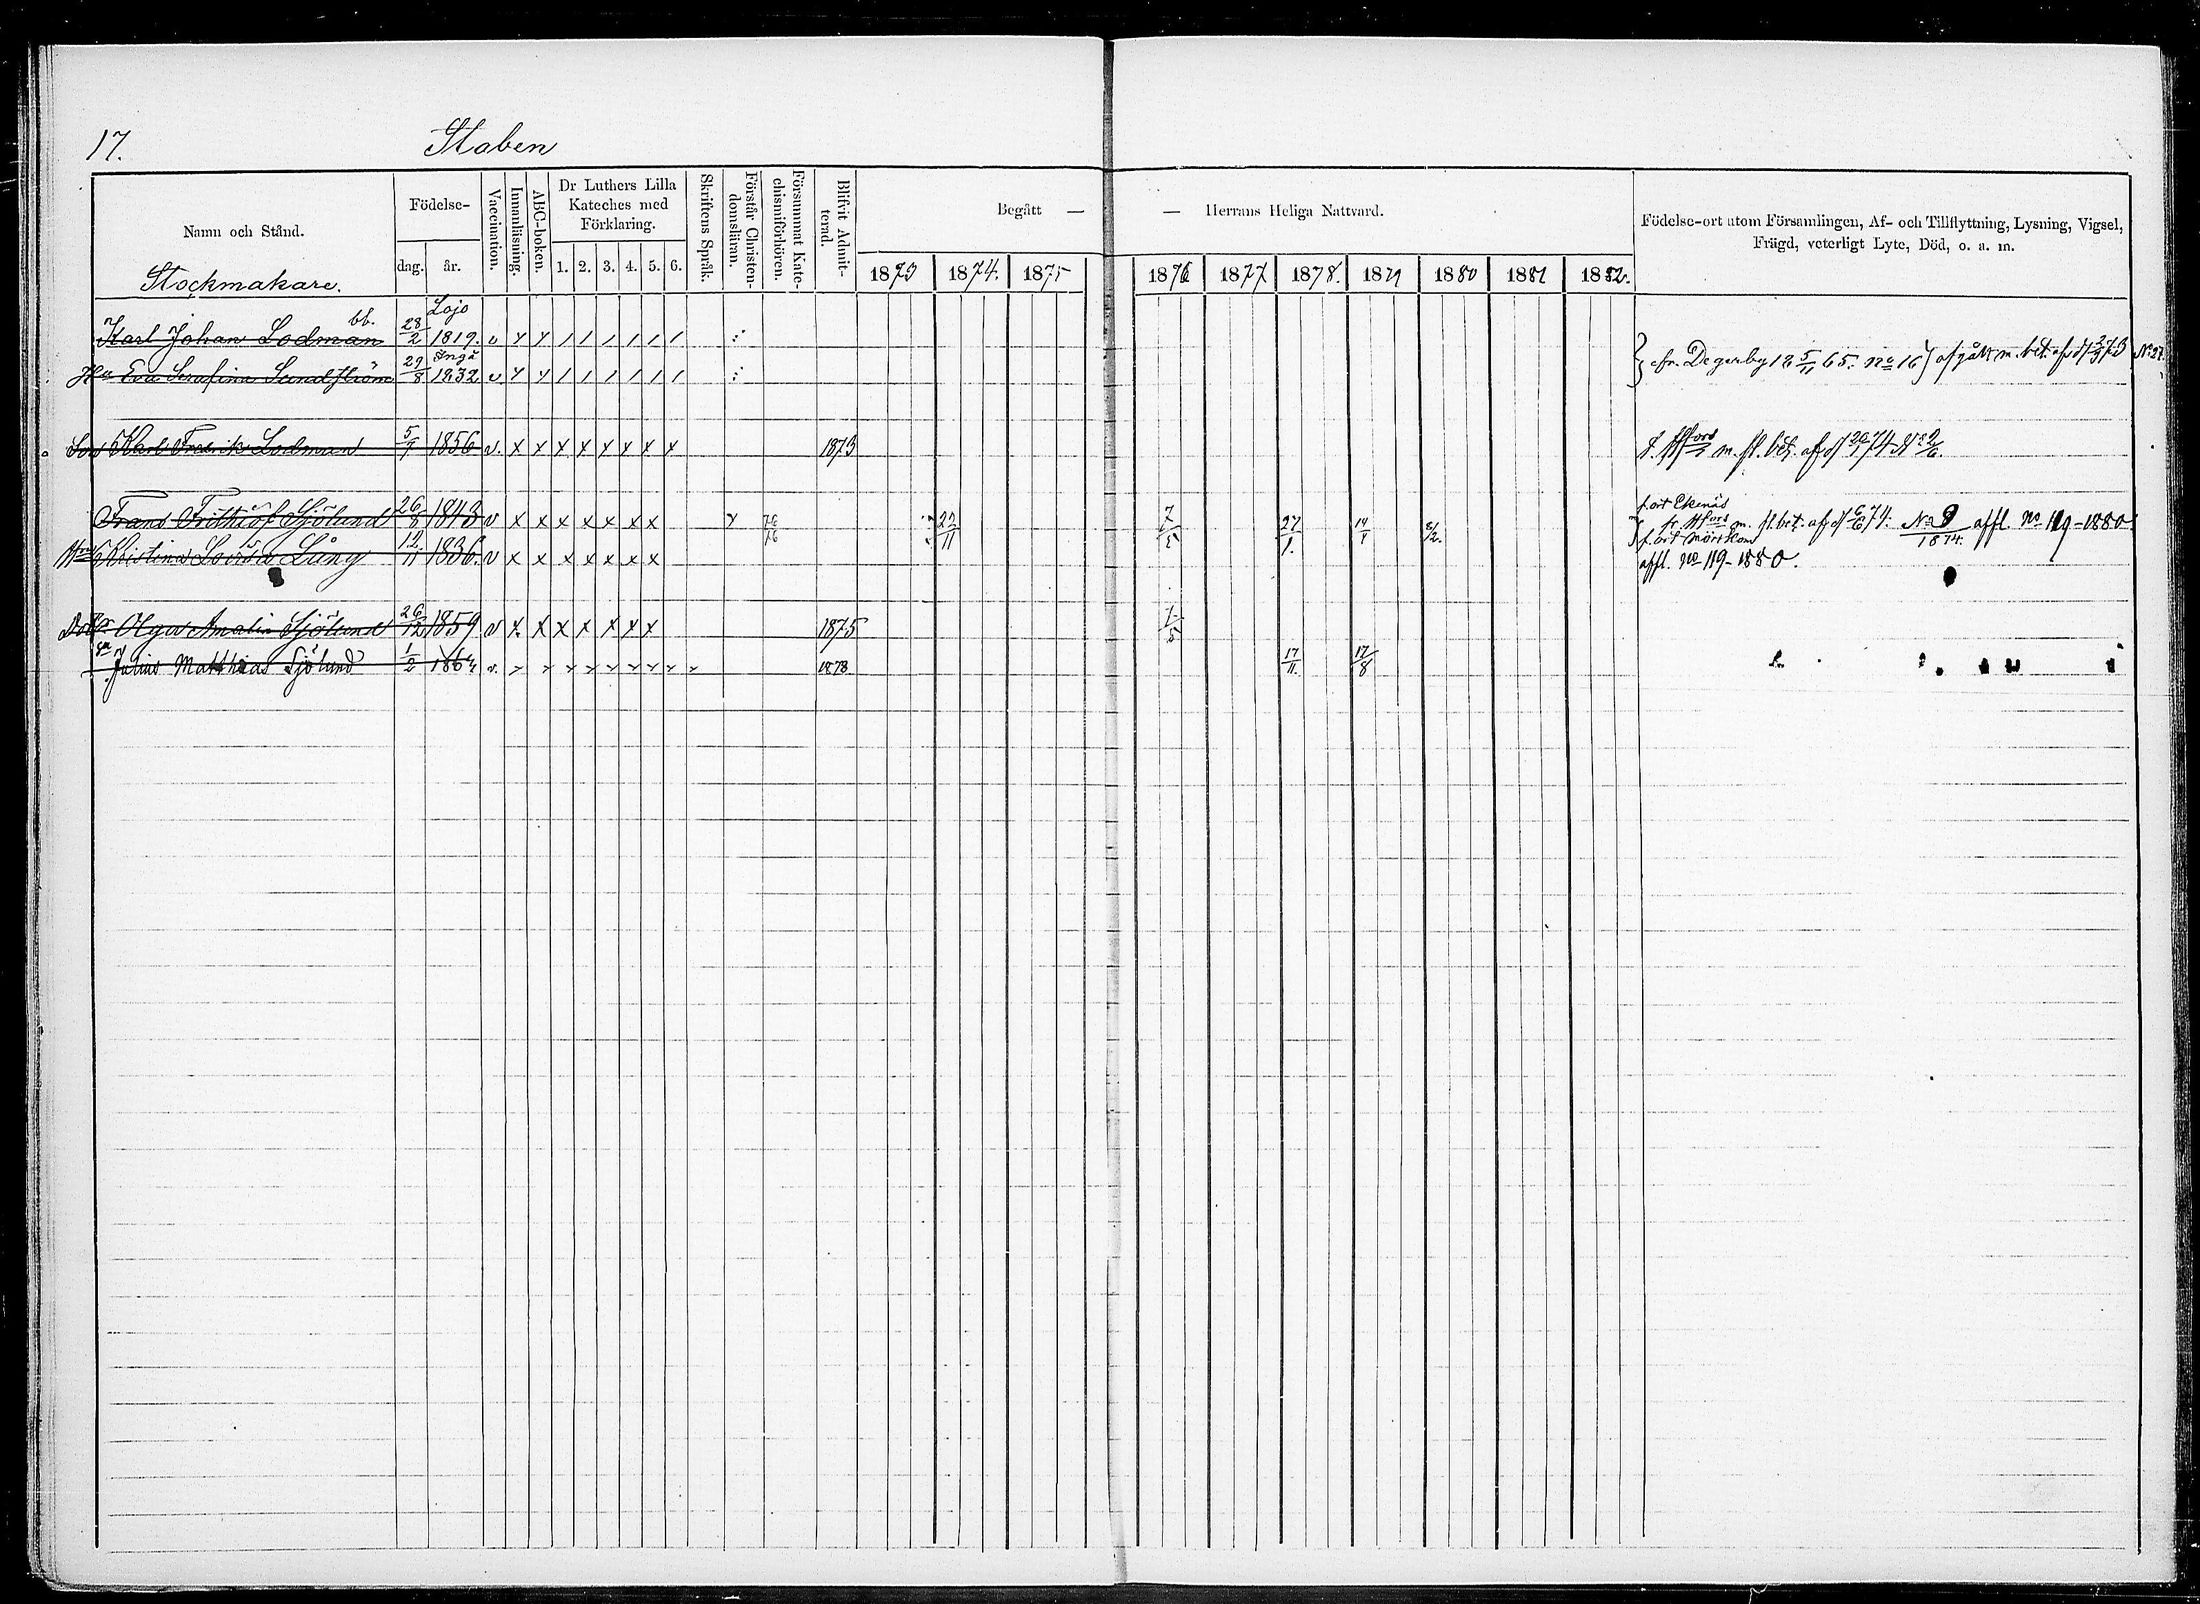 17.
Staben
Namn och Stånd.
Födelse-
dag. år.
Vaccination.
Innanläsning.
ABC-boken.
Dr Luthers Lilla
Kateches med
Förklaring.
1. 2. 3. 4. 5. 6.
Skriftens Språk.
Förstår Christen-
domsläran.
Försummat Kate-
chismiförhören.
Blifvit Admit-
terad.
Begått — — Herrans Heliga Nattvard.
1873 1874. 1875 1876 1877 1878. 1879 1880 1881 1882.
Födelse-ort utom Församlingen, Af- och Tillflyttning, Lysning, Vigsel,
Frägd, veterligt Lyte, Död, o. a. m.
Stockmakare.
Lojo
Karl Johan Lodman bb. 28/2 1819. v
Ingå
Hu Eva Serafina Sundström 29/8 1832 v
fr. Degerby 18 5/11 65. no 16
Son Karl Fredrik Lodman 5/7 1856 v. x x x x x x x x 1873
m. fl. bet. af d
f. ort Ekenäs
Frans Frithiof Sjölund 26/8 1843 v x x x x x x x 22/11 7/5 27/1. 8/2.
m. fl. bet. af d 6/6 74. No 9/1874. affl. no 119-1880.
Kristina Lovisa Lång 12/11 1836. v x x x x x x x
affl. no 119-1880.
Olga Amalia Sjölund 26/12 1859 v x x x x x x x 1875
Julius Matthias Sjölund 1/2 1864 v. 1878 17/11. 17/8